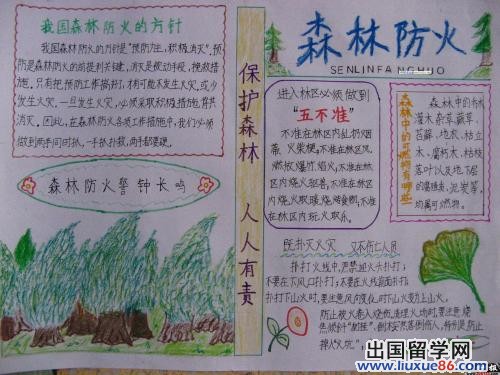 我国森林防火的方针
我国森林防火的方针是"预防为主,积极消灭",预
防是森林防火的前提和关键,消灭是被动手段,挽救措
施,只有把预防工作搞好了,才有可能不发生火灾,或少
发生火灾,一旦发生火灾,必须采取积极措施,
消灭,因此,在森林防火各项工作措施中,我们必须
做到两手同时抓,一手抓扑救,两手都要硬。
森林防火警钟长鸣
保护森林 人人有责
森林防火
SENLINFANGHUO
进入林区必须做到
"五不准"
不准在林区内乱扔烟
蒂、火柴梗,不准在林区
燃放爆竹、焰火,不准在林
区内烧火驱兽,不准在林区
内烧火取暖、烧烤食物,不准
在林区内玩火取乐。
森林中的可燃物有哪些
森林中的乔木
灌木、杂草、蕨草、
苔藓、地衣、枯立
木、腐朽木、枯枝
落叶以及地下层
的腐殖质、泥炭等,
均属可燃物。
既扑灭火灾 又不伤亡人员
扑打火线中,严禁迎火头扑打;
不要在下风口扑打;不要在火线前面扑打;
扑打下山火时,要注意风向变化,时下山火变为上山火,
防止被火卷入烧伤,清理火场时,要注意烧
焦倾斜"树挂",倒木突然落倒伤人,特别是防止
掉入"火坑",
出国留学网
www.liuxue86.com